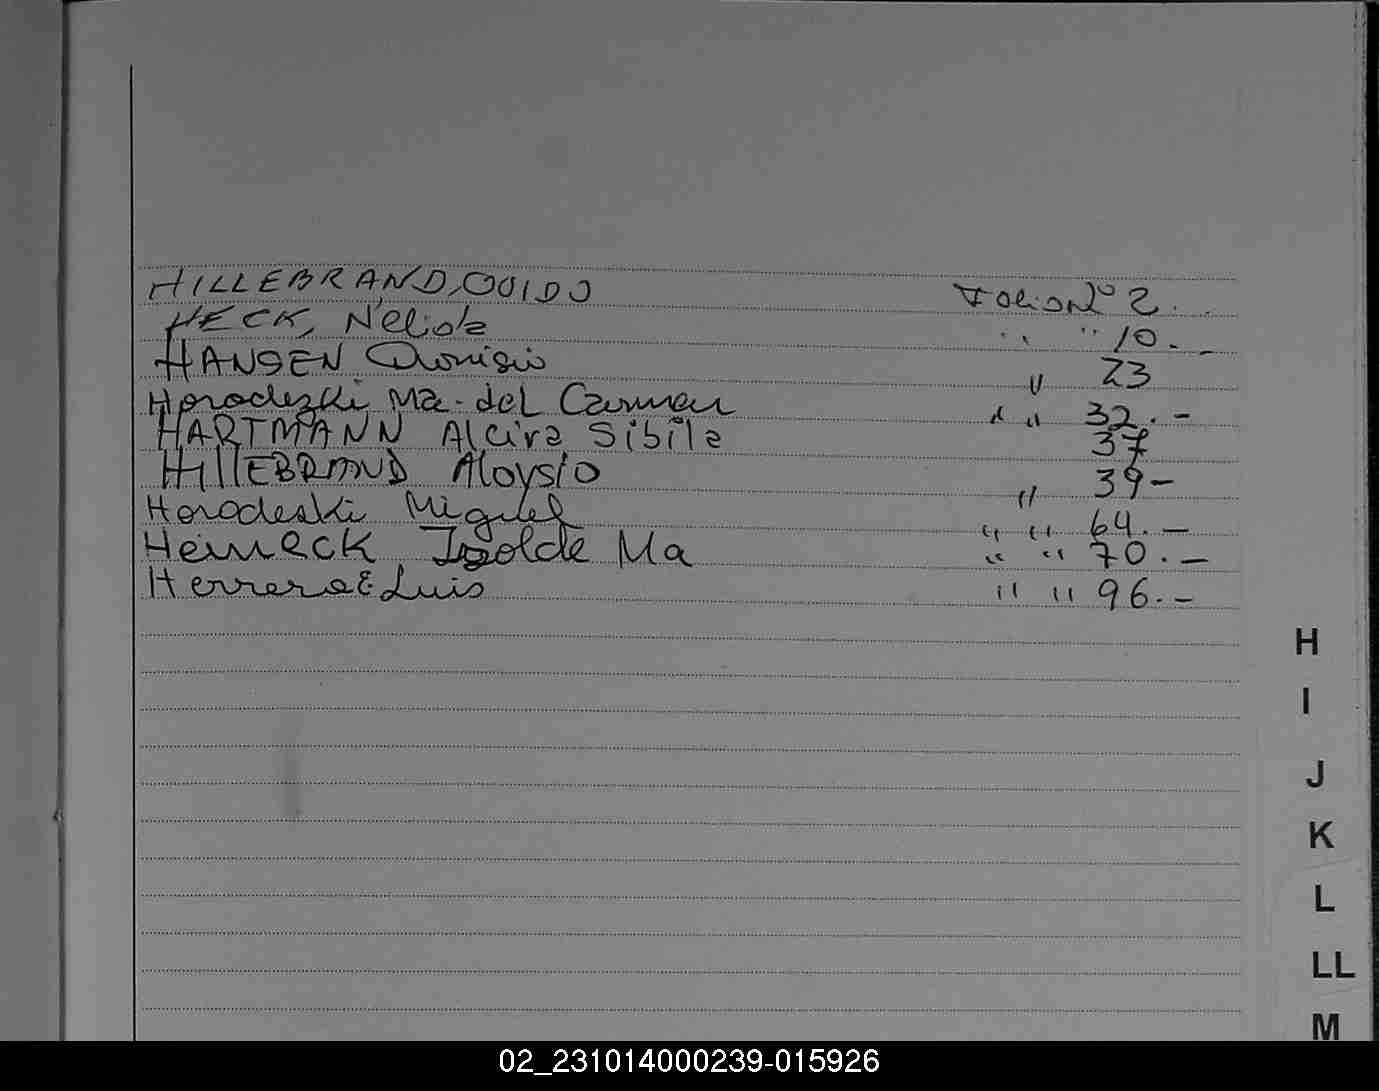 HILLEBRAND, GUIDO Folio Nº 2.
HECK, Nélida " " 10.-
HANSEN Dionisio " 23
Horodezki Ma. del Carmen " " 32.-
HARTMANN Alcira Sibila 37
HILLEBRAND Aloysio " 39-
Horodeski Miguel " " 64.-
Heineck Isolde Ma " " 70.-
Herrera E Luis " " 96.-
H
I
J
K
L
LL
M
02_231014000239-015926